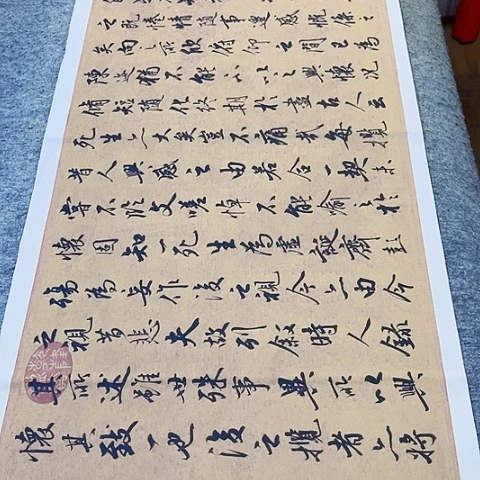 之既倦情隨事遷感慨係之
矣向之所欣俯仰之間已為
陳迹猶不能不以之興懷況
脩短隨化終期於盡古人云
死生亦大矣豈不痛哉每攬
昔人興感之由若合一契未
嘗不臨文嗟悼不能喻之於
懷固知一死生為虛誕齊彭
殤為妄作後之視今亦由今
之視昔悲夫故列敘時人錄
其所述雖世殊事異所以興
懷其致一也後之攬者亦將